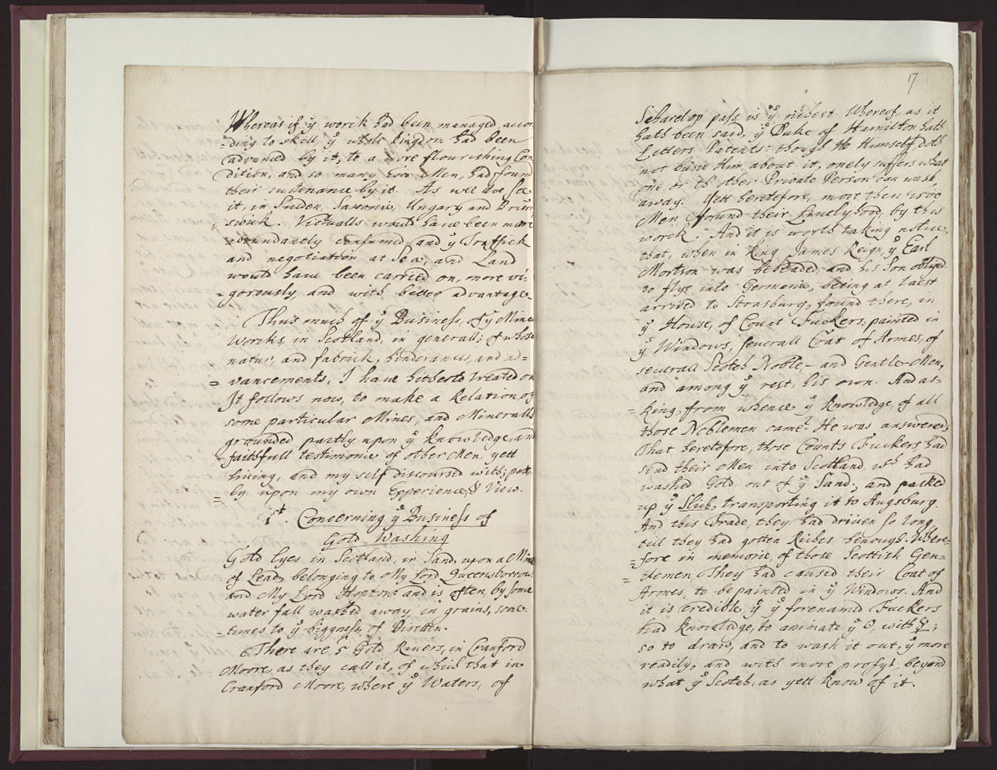 Whereas if yͤ worck had been managed accor
-ding to skill yͤ whole kingdom had been
advanced by it, to a more flourishing Con
dition, and so many poor Men, had found
their sustenance by it. As wee doe see
it in Sueden, Saxonie, Ungary and Brun
swick. Victualls would have been more
abundantly consumed, and yͤ Traffick
and negotiation at Sea, and Land
would have been carried on, more vi-
-gorously and with better advantage.
Thus much of yͤ Business, of yͤ Mine
Worcks in Scotland, in generall; of whose
nature, and fabrick, hinderances, and ad-
= vancements, I have hitherto treated on
It follows now, to make a Relation of
some particular Mines, and Mineralls
grounded partly upon yͤ knowledge, and
faithfull testimonie of other Men, yett
living, and my self discoursed with; part
= by upon my own Experience, & View.
1ᵗ. Concerning yͤ Business of
Gold Washing
Gold lyes in Scotland, in Sand, upon a Mine
of Lead, belonging to My Lord Queensborrow
and My Lord Hopton and is often, by some
water fall washed away, in grains, some
-times to yͤ biggness, of
There are 5 Gold Rivers, in Cranford
Moore, as they call it, of which that in
Cranford Moore, where yͤ Waters, of
17
pass, is yͤ richest Whereof as it
hath been said, yͤ Duke of Hamilton hath
Letters Patents: though He Himself doth
not busie Him about it, onely suffers what
one or th'other Private Person can wash
away. Yett heretofore, more then
Men, found their livelyhood by this
worck. And it is worth taking notice,
that, when in King James Reign, yͤ Earl
Mortson was beheaded, and his Son oblyged
to flye into Germanie, being at last
arrived to Strasburg, found there, in
yͤ House, of Count Fuckers, painted in
yͤ Windows, severall Coat of Armes, of
severall Scotch Noble- and Gentle-Men,
and among yͤ rest, his own. And as-
-king, from whence yͤ knowledge of all
those Noblemen came? He was answered,
That heretofore, those Counts Fuckers had
send their Men, into Scotland wch had
washed Gold out of yͤ Sand, and packed
up yͤ Slick, transporting it to Augsburg.
And this Trade, they had driven so long,
till they had gotten Riches henough. Where-
=fore in memorie, of those Scottish Gen-
=tlemen, They had caused their Coat of
Armes, to be painted in yͤ Windows. And
it is credible, yͭ yͤ forenamd Fuckers
had knowledge, to animate yͤ ☉, with ☿;
so to draw, and to wash it out, yͤ more
readily, and with more profyt, beyond
what yͤ Scotch, as yett know of it.